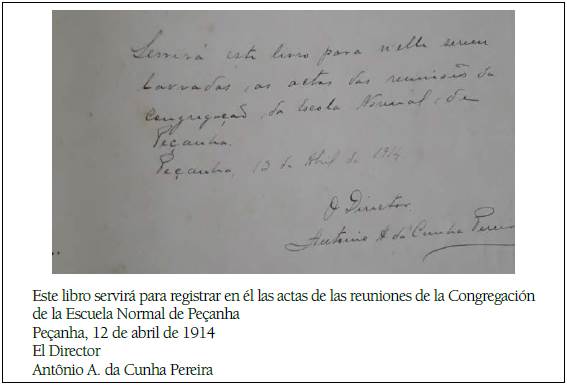 Servirá este livro para nelle serem
lavradas, as actas das reuniões da
Congregação, da Escola Normal, de
Peçanha.
Peçanha, 12 de Abril de 1914
O Director
Antonio A da Cunha Pereira
Este libro servirá para registrar en él las actas de las reuniones de la Congregación
de la Escuela Normal de Peçanha
Peçanha, 12 de abril de 1914
El Director
Antônio A. da Cunha Pereira